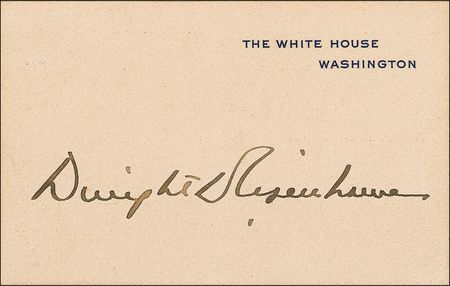 THE WHITE HOUSE
WASHINGTON
Dwight D Eisenhower